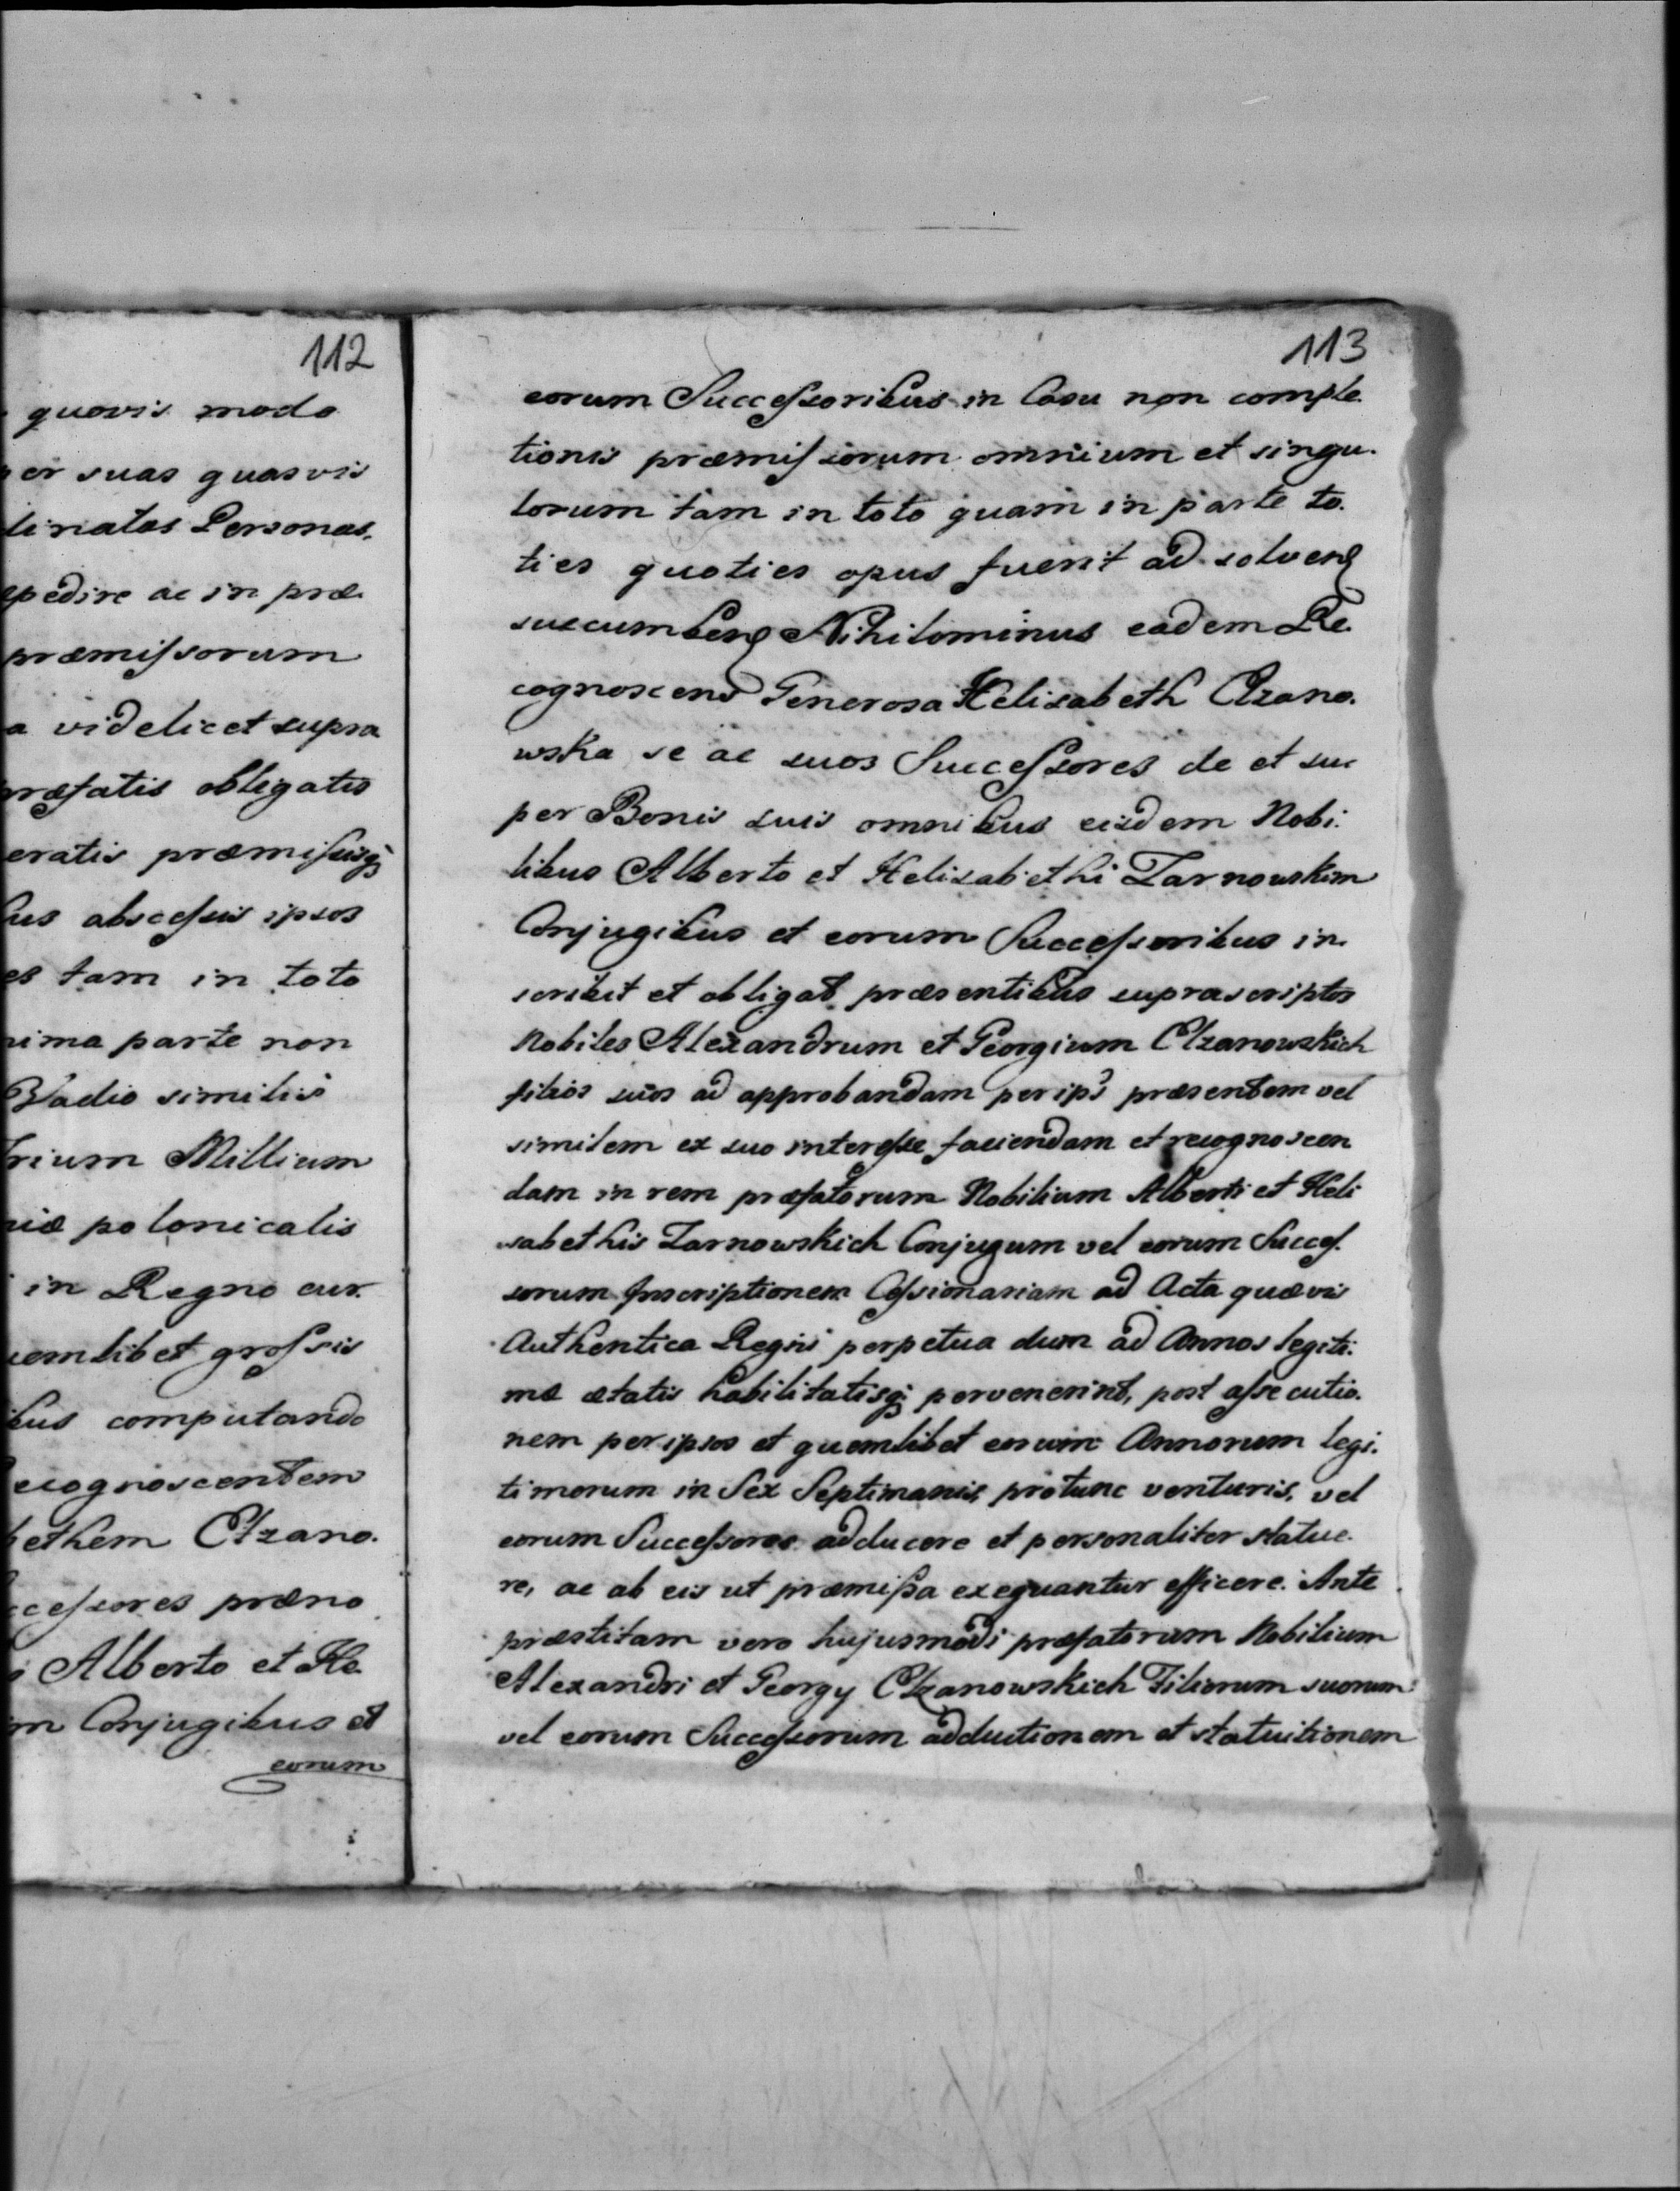 112
quovis modo
er suas quasvis
linatas Personas,
pedire ac in præ
præmissorum
a videlicet supra
præfatis obligatis
eratis præmissisq;
us abscessis ipsos
es tam in toto
nima parte non
Vadio similis
Trium Millium
niæ polonicalis
in Regno cur.
uemlibet grossis
ibus computando
ecognoscentem
bethem Elzano.
ccessores præno
Alberto et He
m Conjugibus et
eorum
113
eorum Successoribus in Casu non comple.
tionis præmissorum omnium et singu.
lorum tam in toto quam in parte to.
ties quoties opus fuerit ad solvend
succumbend Nihilominus eadem Re
cognoscens Generosa Helisabeth Elzano.
wska se ac suos Successores de et su
per Bonis suis omnibus eisdem Nobi.
libus Alberto et Helisabethi Zarnowskim
Conjugibus et eorum Successoribus in
scribit et obligat præsentibus suprascriptos
Nobiles Alexandrum et Georgium Elzanowskich
filios suos ad approbandam per ips præsentem vel
similem ex suo interesse faciendam et recognoscen
dam in rem præfatorum Nobilium Alberti et Heli
sabethis Zarnowskich Conjugum vel eorum Succes.
sorum Inscriptionem Cessionariam ad Acta quævis
Authentica Regni perpetua dum ad Annos legiti.
mæ ætatis habilitatisq; pervenerint, post assecutio.
nem per ipsos et quemlibet eorum Annorum legi.
timorum in Sex Septimanis protunc venturis, vel
eorum Successores adducere et personaliter statue.
re, ac ab eis ut præmissa exequantur efficere. Ante
præstitam vero hujusmodi præfatorum Nobilium
Alexandri et Georgy Elzanowskich Filiorum suorum
vel eorum Successorum adductionem et statuitionem